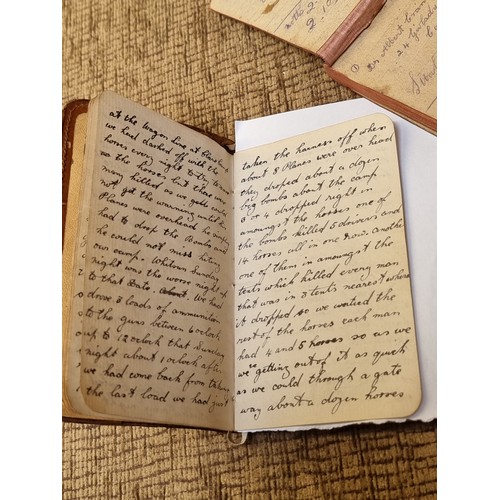 at the Wagon Line at
we had dashed off with the
horses every night try to
so the horses but there were
many killed as we gets
not get the warning until
Planes were overhead he
had to drop the Bombs and
he could not miss hiting
our camp. Whitsun Sunday
night was the worse night
to that Date We had
drove 3 loads of ammunition
to the guns between 6 oclock
up to 12 oclock that Sunday
night about 1 oclock after
we had come back from taking
the last load we had just
taken the harness off when
about 8 Planes were over head
they dropped about a dozen
big bombs about the camp
3 or 4 dropped right in
amongst the horses one of
the bombs killed 5 drivers and
14 horses all in one row. another
one of them in amongst the
tents which killed every man
that was in 3 tents nearest where
it dropped so we watied the
rest of the horses each man
had 4 and 5 horses so as we
we getting out of it as quick
as we could through a gate
way about a dozen horses
2.
①
24